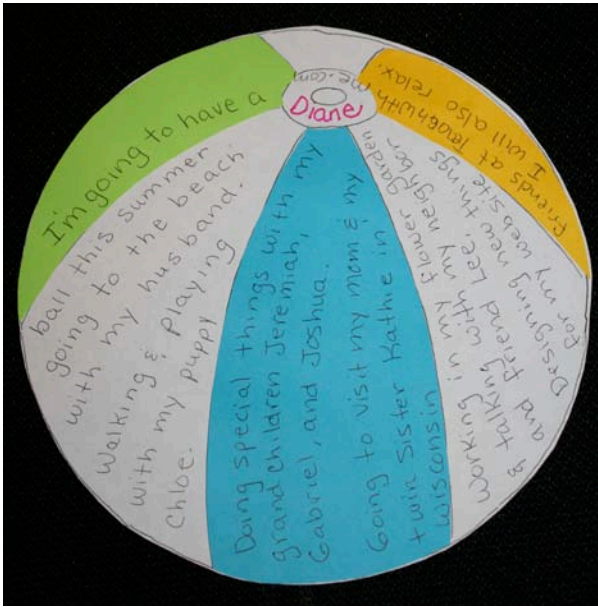 Diane
I'm going to have a
ball this summer
going to the beach
with my husband.
Walking & playing
with my puppy
Chloe.
Doing special things with my
grandchildren Jeremiah,
Gabriel, and Joshua.
Going to visit my mom & my
twin sister Kathie in
Wisconsin
Working in my flower garden
& talking with my neighbor
and friend Lee,
Designing new things
for my website
friends at Teachwithme.com
I will also relax.